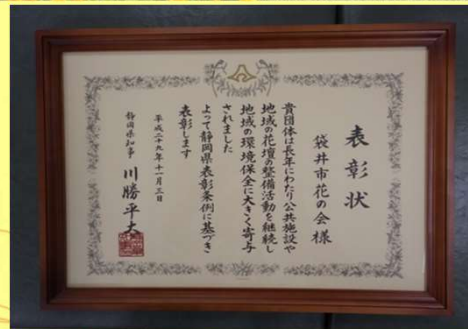 表彰状
袋井市花の会様
貴団体は長年にわたり公共施設や
地域の花壇の整備活動を継続し
地域の環境保全に大きく寄与
されました
よって静岡県表彰条例に基づき
表彰します
平成二十九年十一月三日
静岡県知事 川勝平太